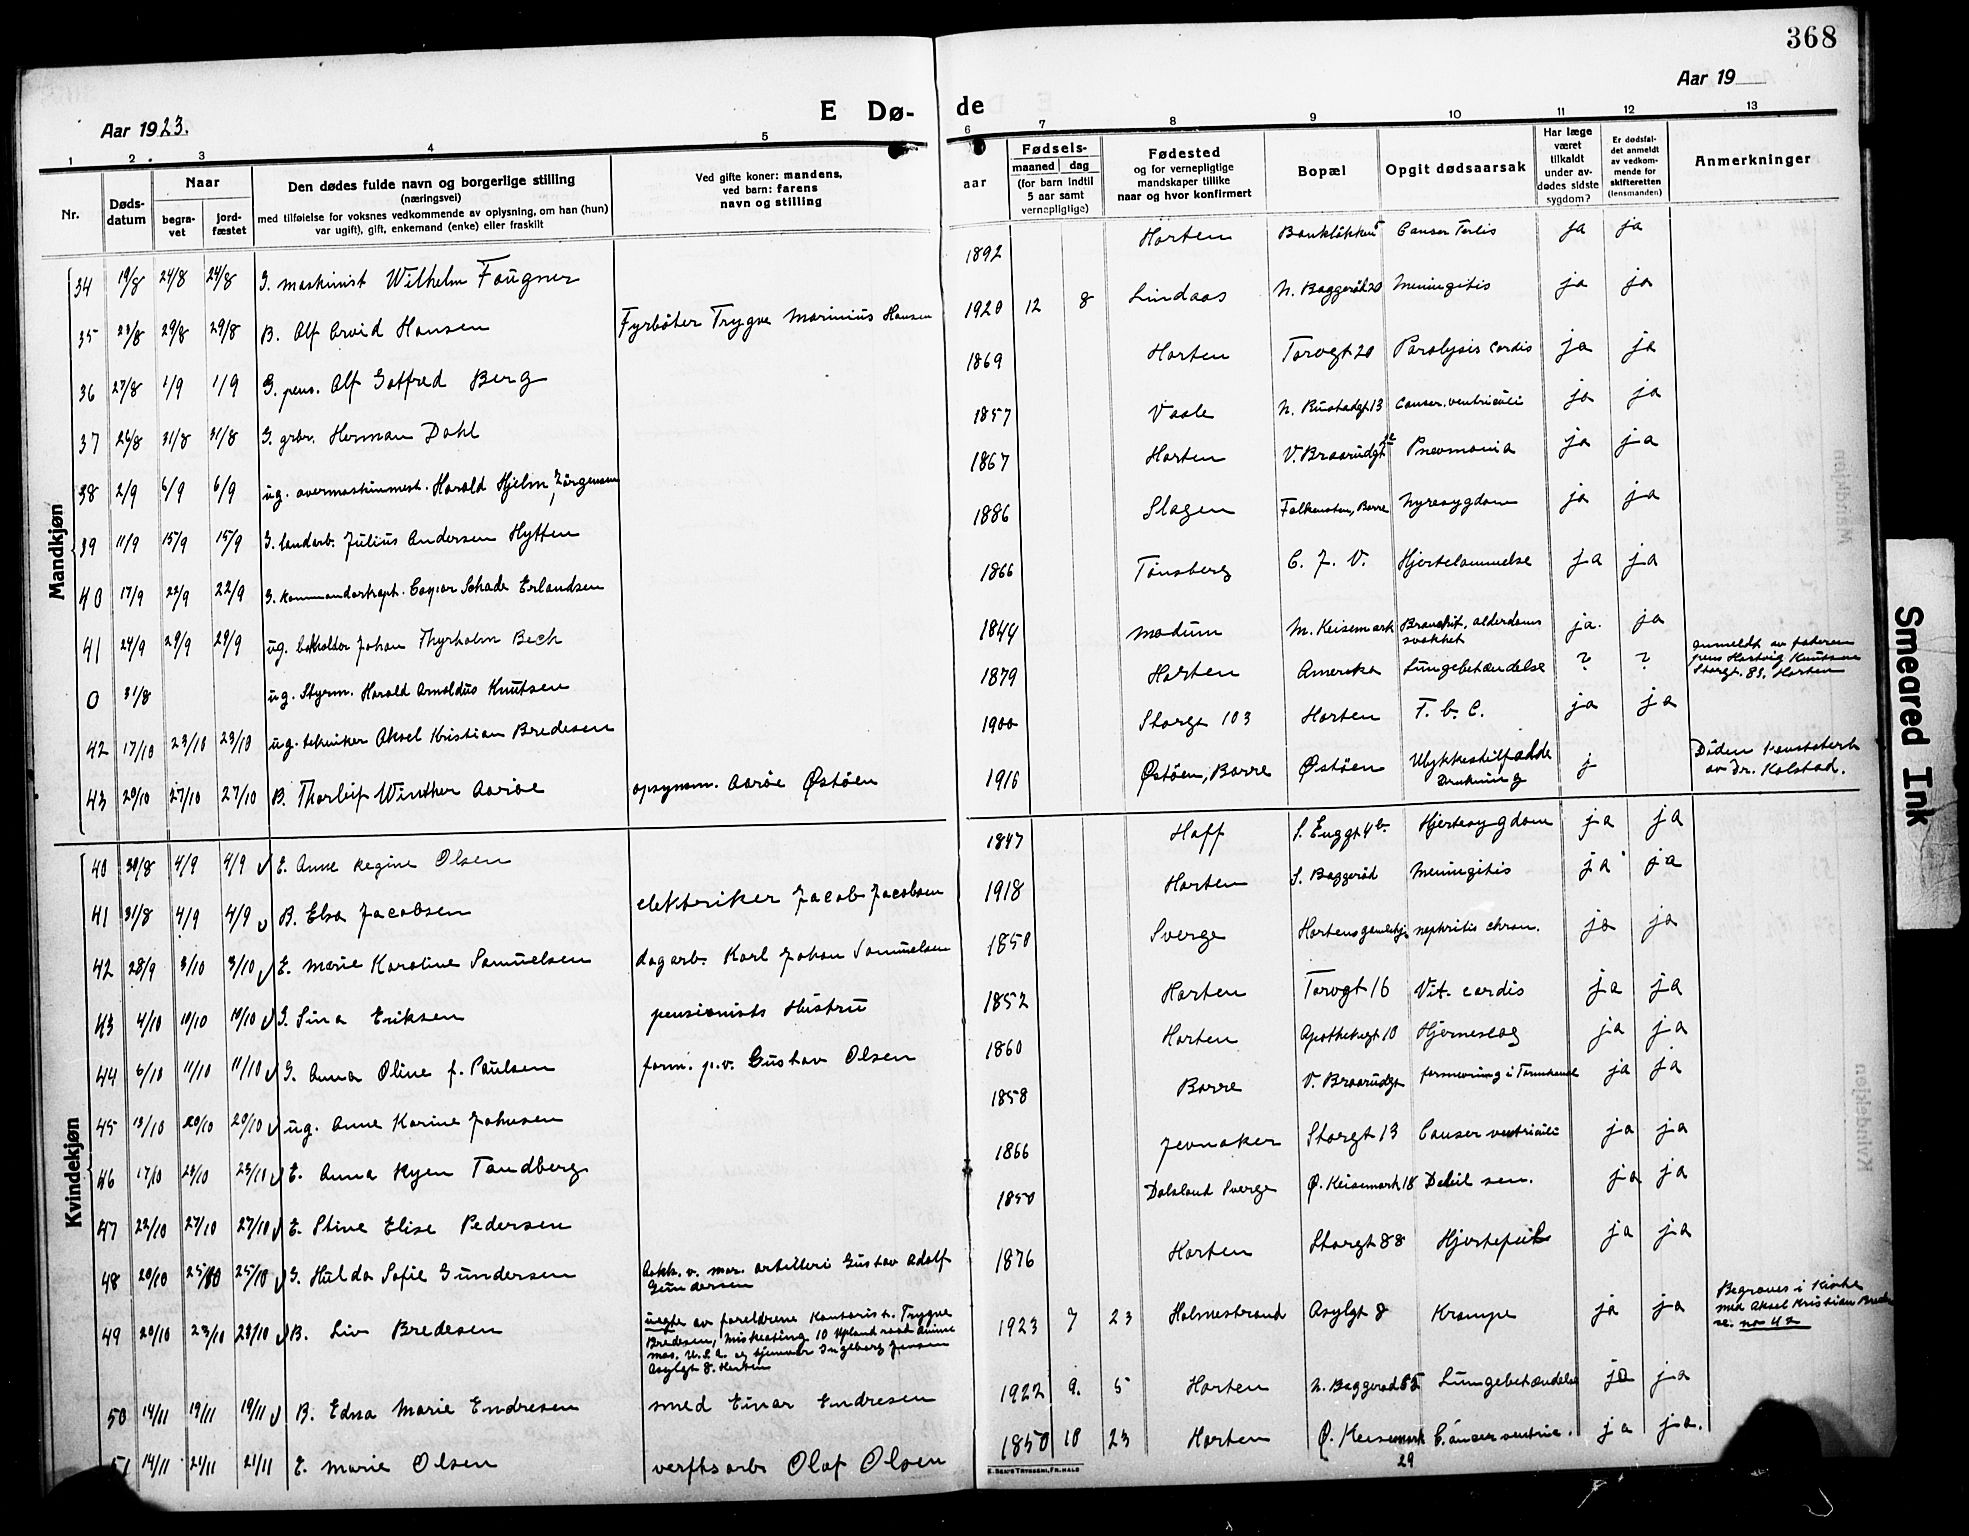 368
Aar 1923.
E Dø-
de
Aar 19
1 2 3 4 5 6 7 8 9 10 11 12 13
Nr.
Døds-
datum
Naar
begra-
vet
jord-
fæstet
Den dødes fulde navn og borgerlige stilling
(næringsvei)
med tilføielse for voksnes vedkommende av oplysning, om han (hun)
var ugift), gift, enkemand (enke) eller fraskilt
Ved gifte koner: mandens,
ved barn: farens
navn og stilling
aar
Fødsels-
maaned dag
(for barn indtil
5 aar samt
vernepligtige)
Fødested
og for vernepligtige
mandskaper tillike
naar og hvor konfirmert
Bopæl
Opgit dødsaarsak
Har læge
været
tilkaldt
under av-
dødes sidste
sygdom?
Er dødsfal-
det anmeldt
av vedkom-
mende for
skifteretten
(lensmanden)
Anmerkninger
Mandkjøn
34 19/8 24/8 24/8 G. maskinist Wilhelm Fougner 1892 Horten Bankløkken Cancer ja ja
35 23/8 29/8 29/8 B. Alf Arvid Hansen Fyrbøter Trygve Marinius Hansen 1920 12 8 Lindaas N. Baggerøt 20 Meningitis ja ja
36 27/8 1/9 1/9 G. pens. Alf Gotfred Berg 1869 Horten Torvgt 20 Paralysis cordis ja ja
37 26/8 31/8 31/8 G. grbr. Herman Dahl 1857 Vaale N. Bustadgt 13 Cancer. ventriculi ja ja
38 2/9 6/9 6/9 ug. overmaskinmest. Harald Hjelm Jørgensen 1867 Horten V. Braarudgt Pneumonia ja ja
39 11/9 15/9 15/9 G. landarb. Julius Andersen Hytten 1886 Slagen Falkensten, Borre Nyresygdom ja ja
40 17/9 22/9 22/9 G. kommandørkapt. Caspar Schade Erlandsen 1866 Tønsberg C. J. V. Hjertelammelse ja ja
41 24/9 29/9 29/9 ug. Johan Thyrholm Bech 1844 Modum M. Keisemark Bronchit, alderdoms
svakhet ja. ja
0 31/8 ug. Styrm. Harald Arnoldus Knutsen 1879 Horten Amerika Lungebetændelse ? ? Anmeldt av faderen
pens Hartvig Knutsen
Storgt. 83. Horten
42 17/10 23/10 23/10 ug. tekniker Aksel Kristian Bredesen 1900 Storgt 103 Horten T. b. C. ja ja
43 20/10 27/10 27/10 B. Thorleif Winther Aarøe opsynsm. Aarøe Østøen 1916 Østøen, Borre Østøen Ulykkestilfædde
Drukning j Døden konstatert
av Dr. Kolstad.
Kvindekjøn
40 30/8 4/9 4/9 E. Anne Regine Olsen 1847 Hoff S. Enggt 4b. Hjertesygdom ja ja
41 31/8 4/9 4/9 B. Elsa Jacobsen elektriker Jacob Jacobsen 1918 Horten S. Baggerød Meningitis ja ja
42 28/9 3/10 3/10 E. Marie Karoline Samuelsen dagarb. Karl Johan Samuelsen 1850 Sverge Hortens gamlehj. nephritis chron. ja ja
43 4/10 10/10 10/10 G. Sina Eriksen pensionists Hustru 1852 Horten Torvgt 16 Vit. cordis ja ja
44 6/10 11/10 11/10 G. Anna Oline f. Paulsen form. p.v. Gustav Olsen 1860 Horten Apothekergt 10 Hjerneslag ja ja
45 13/10 20/10 20/10 ug. Anne Karine Johnsen 1858 Borre V. Braarudgt i Tarmkanal ja ja
46 17/10 23/10 23/10 E. Anna Ryen Tandberg 1866 Jevnaker Storgt 13 Cancer ventriculi ja ja
47 22/10 27/10 27/10 E. Stine Elise Pedersen 1850 Dalsland Sverge Ø. Keisemark 18 Debil sen. ja ja
48 20/10 25/10 25/10 G. Hulda Sofie Gundersen v. mar. artilleri Gustav Adolf
Gundersen 1876 Horten Storgt 88 Hjertefeil ja ja
49 20/10 23/10 23/10 B. Liv Bredesen uegte av foreldrene Kontorist. Trygve
Bredesen, 10 Upland road
mas. U.S.A. og Ingeborg Jensen
Asylgt 8. Horten 1923 7 23 Holmestrand Asylgt 8 Krampe ja ja Begraves i Kiste
med Aksel Kristian Brede
se. no 42
50 14/11 19/11 19/11 B. Edna Marie Endresen smed Einar Endresen 1922 9. 5 Horten N. Baggerød 55 Lungebetændelse ja ja
51 14/11 21/11 21/11 E. Marie Olsen verftsarb Olaf Olsen 1850 10 23 Horten Ø. Keisemark
29 Cancer ventric. ja ja.
E. SEM'S TRYKKERI, FR.HALD
Smeared Ink